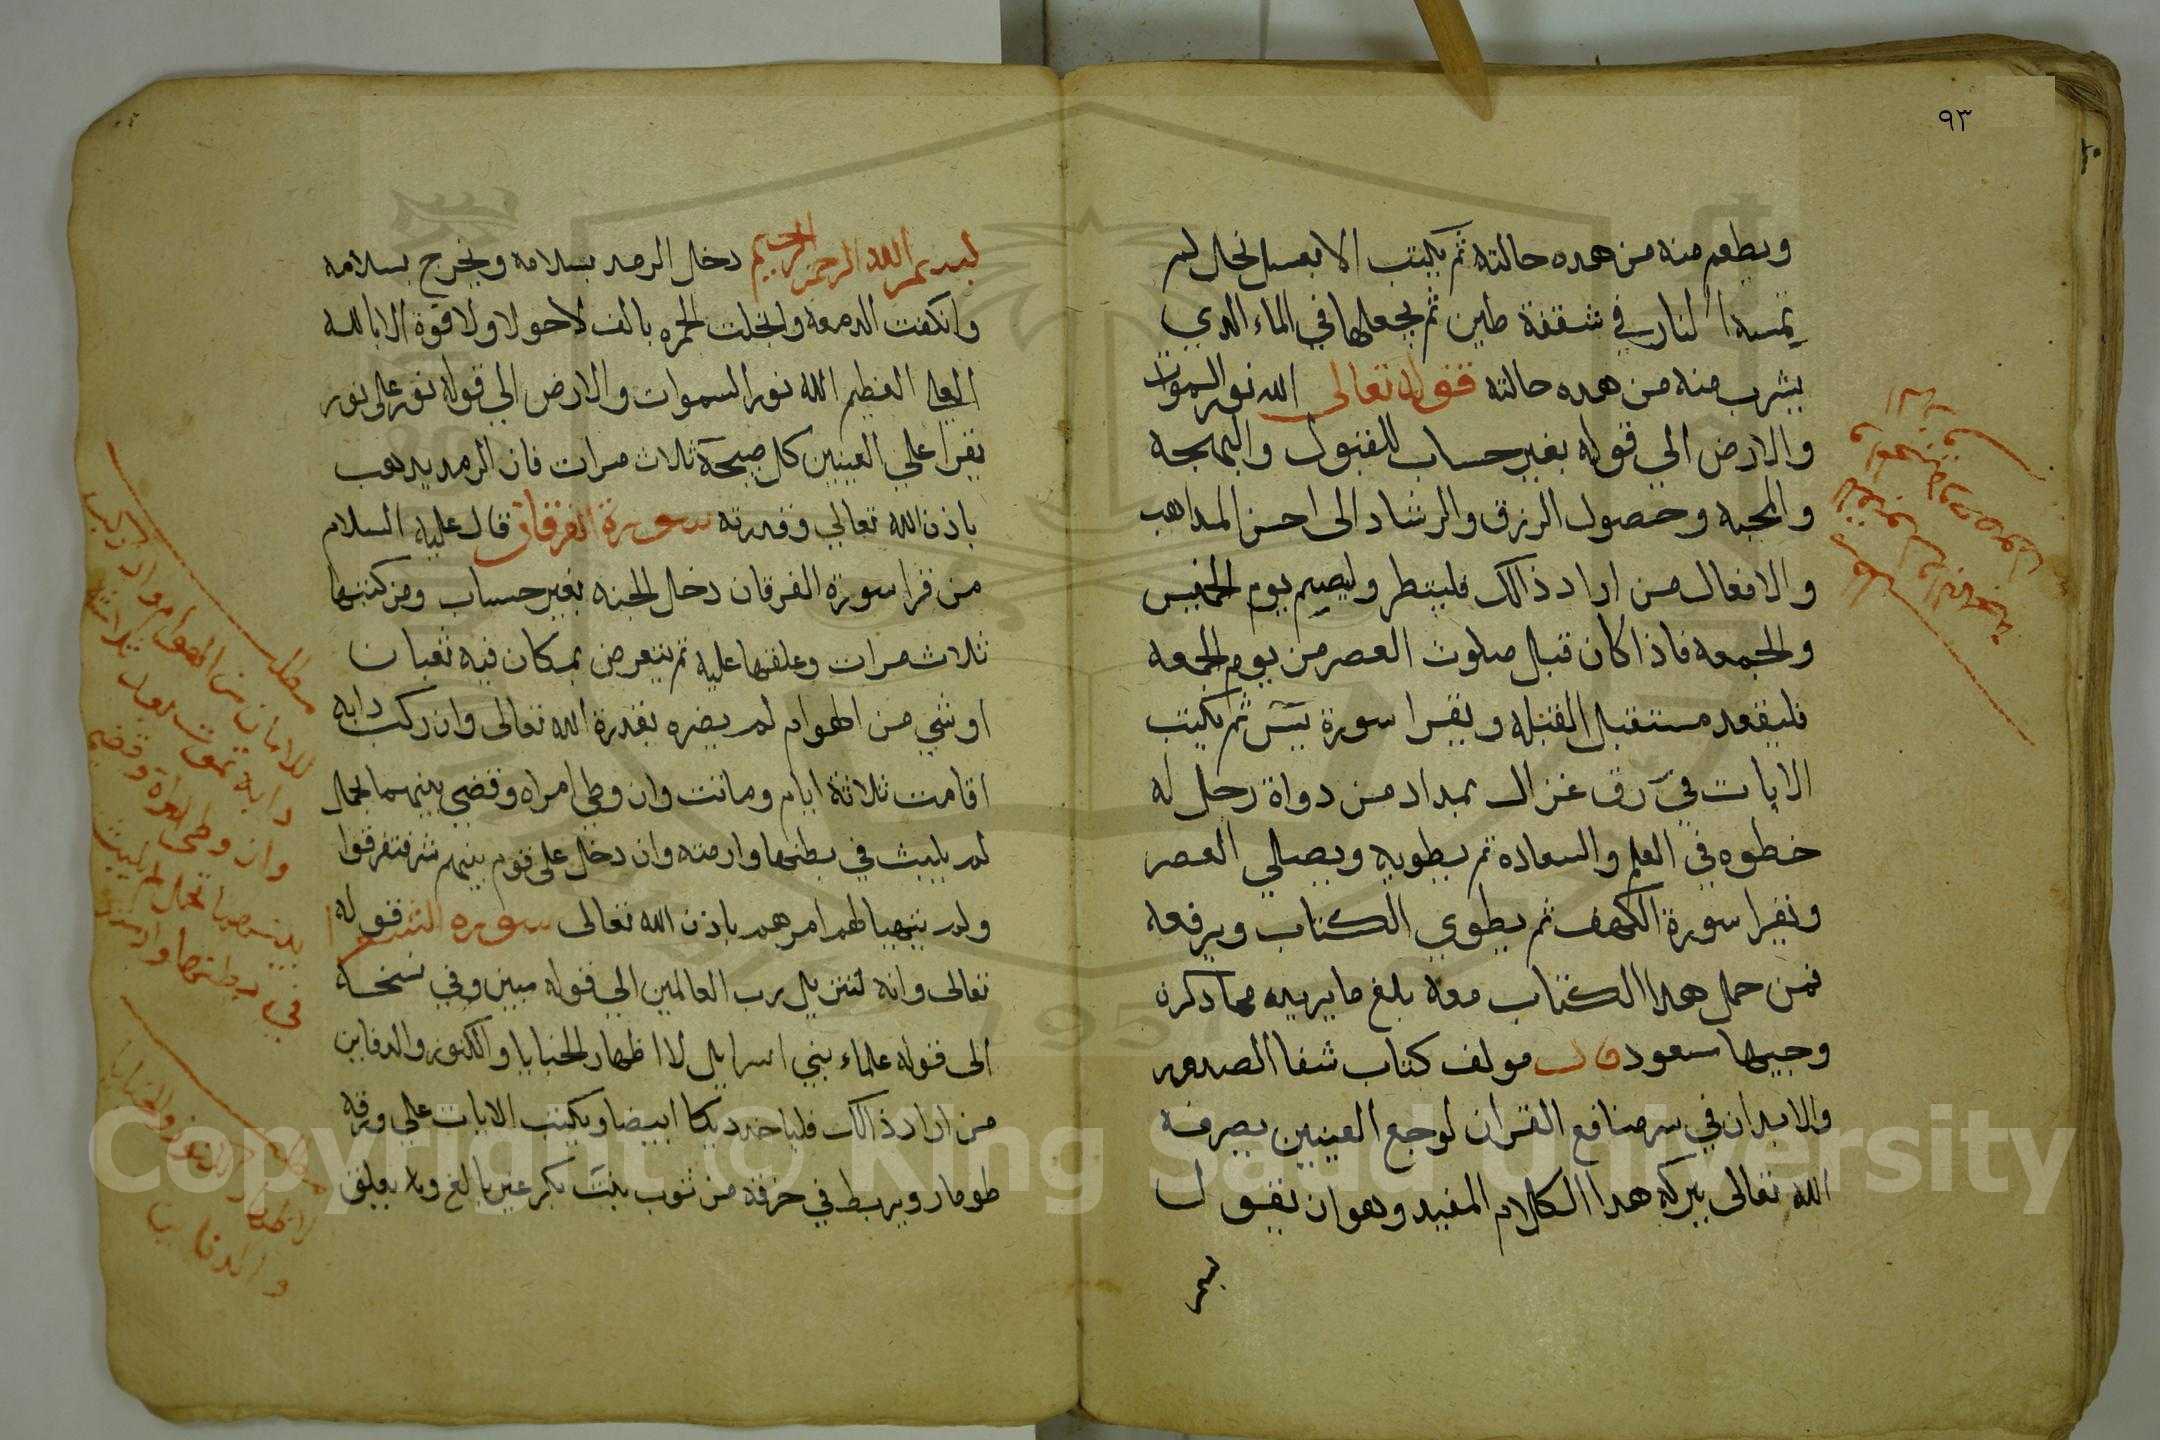 ٩٣
ويطعم منه من هده حالته ثم يكتب الا بعسل نحل لم
تمسه النار في شقفة طين ثم يجعلها في الماء الدي
يشرب منه من هده حالته قوله تعالى الله نور السموات
والارض الي قوله بغير حساب للقبول والبهجه
والمحبه وحصول الرزق والرشاد الى احسن المداهب
والافعال من اراد ذالك فليتطر وليصيم يوم الخميس
والجمعه فاذا كان قبل صلوت العصر من يوم الجمعه
فليقعد مستقبل القبله ويقرا سورة يس ثم يكتب
الايات في رق غزال بمداد من دواة رجل له
خطوه في العلم والسعاده ثم يطويه ويصلي العصر
ويقرا سورة الكهف ثم يطوي الكتاب ويرفعه
فمن حمل هدا الكتاب معه بلغ ما يريده مما دكرن
وجيها سعود قال مولف كتاب شفا الصدور
والابدان في سر منافع القران لوجع العينين يصرفه
الله تعالى ببركه هدا الكلام المفيد وهو ان تقول
بسم
بسم الله الرحمن الرحيم دخل الرمد بسلامه ويخرج بسلامه
وانكفت الدمعه وانجلت الحمره بالف لا حولا ولا قوة الا بالله
العلي العظيم الله نور السموات والارض الي قوله نور على نور
تقرا علي العينين كل صبحة ثلاث مرات فان الرمد يدهب
باذن الله تعالي وقدرته سورة الفرقان قال عليه السلام
من قرا سورة الفرقان دخل الجنه بغير حساب ومن كتبها
ثلاث مرات وعلقها عليه ثم يتعرض بمكان فيه ثعبان
او شي من الهوام لم يضره بقدرة الله تعالى وان ركب دابه
اقامت ثلاثة ايام وماتت وان وطي امراه وقضي بينهما بحمل
لم يلبث في بطنها وارمته وان دخل على قوم بينهم شر تفرقوا
ولم يتهيا لهم امرهم باذن الله تعالى سوره الشعرا قوله
تعالى وانه لتنزيل رب العالمين الي قوله مبين وفي نسخه
الى قوله علماء بني اسرايل لاظهار الخبايا والكنوز والدفاين
من اراد ذالك فلياخد ديكا ابيضا ويكتب الايات علي ورقه
طومار ويربط في خرقه من ثوب بنت بكر غير بالغ ويعلق
مطلب
للامان من الهوام واذا ركب
دابة تموت بعد ثلاثة
وان وطي امراة وقضي
بينهما بحمل لم يلبث
في بطنها وارمته
لاظهار الكنوز والخبايا
والدفاين